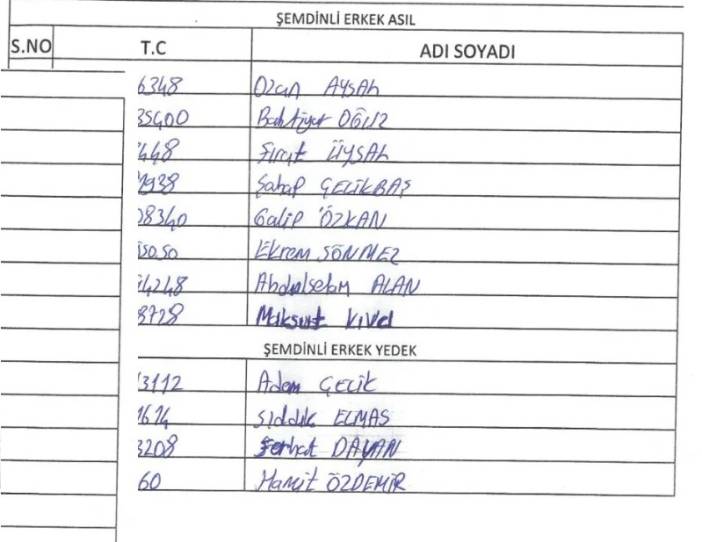 ŞEMDİNLİ ERKEK ASIL
S.NO T.C ADI SOYADI
6348 Ozan AYSAL
35400 Bahtiyar OĞUZ
448 Fırat UYSAL
2938 Şahap ÇELİKBAŞ
08340 Galip ÖZKAN
5050 Ekrem SÖNMEZ
4248 Abdulselam ALAN
8728 Maksut
ŞEMDİNLİ ERKEK YEDEK
3112 Adem ÇELİK
1614 Sıddık ELMAS
3208 Ferhat DAYAN
60 Hamit ÖZDEMİR